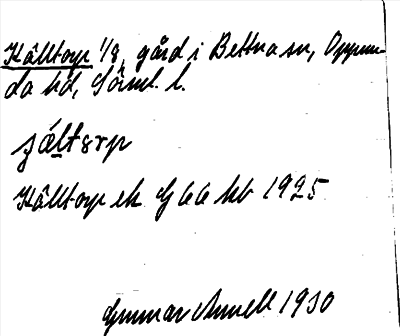 Källtorp 1/8, gård i Bettna sn, Oppun-
da hd, Sörml. l.
Källtorp ek G 66 hkb 1925
Gunnar Linnell 1930